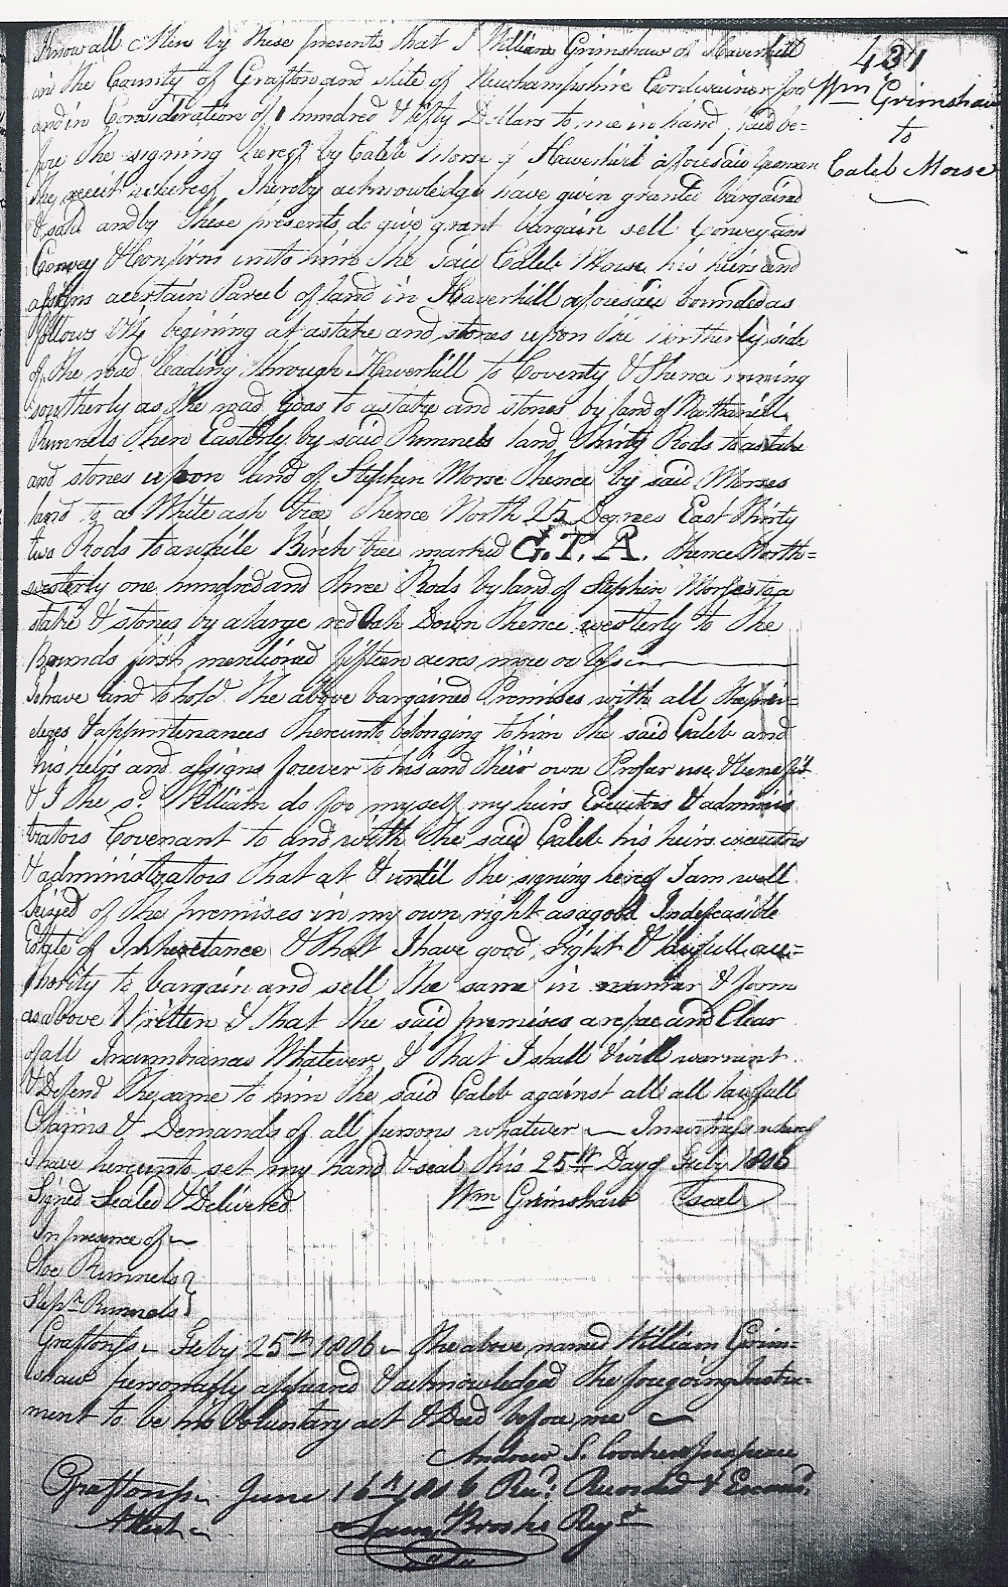 Know all Men by these presents that I William Grimshaw of Haverhill
in the County of Grafton and State of Newhampshire Cordwainer for
and in Consideration of hundred & fifty Dollars to me in hand paid be=
fore the signing hereof by Caleb Morse of Haverhill aforesaid yeoman
the receit whereof I hereby acknowledge have given granted bargained
& sold and by these presents do give grant bargain sell convey and
Convey & Confirm unto him the said Caleb Morse his heirs and
assigns acertain Parcel of land in Haverhill aforesaid bounded as
follows Viz begining at a stake and stones upon the northerly side
of the road leading through Haverhill to Coventy & thence running
southerly as the road goas to astake and stones by land of Nathaniel
Runnels then Easterly by said Runnels land thirty Rods to astake
and stones upon land of Stephen Morse thence by said Morses
land to a White ash tree thence North 25 Degrees East thirty
two Rods to awhile Birch tree marked G.T.R. thence North=
westerly one hundred and three Rods by land of Stephen Morses to a
stake & stones by alarge red Oak Down thence westerly to the
Bounds first mentioned fifteen acres more or less
To have and to hold the above bargained Premises with all the privi=
eleges & appurtenances thereunto belonging to him the said Caleb and
his heirs and assigns forever to his and their own Proper use & benefit
& I the sd. William do for myself my heirs Executors & adminis
trators Covenant to and with the said Caleb his heirs executors
& administrators that at & until the signing hereof I am well
Seized of the premises in my own right as a good Indefeasible
Estate of Inheretance & that I have good right & lawfull au=
thority to bargain and sell the same in manner & form
as above Written & that the said premises are free and Clear
of all Incumbrances Whatever & that I shall & will warrant
& Defend the same to him the said Caleb against all all lawfull
Claims & Demands of all persons whatever In witness whereof
I have hereunto set my hand & seal this 25th Day of Feby 1806
Signed Sealed & Delivered Wm Grimshaw seal
In presence of
Runnels
Stepn Runnels
Graftonss Feby 25th 1806 the above named William Grim=
shaw personally appeared & acknowledged the foregoing Instru=
ment to be his Voluntary act & Deed before me
Andrew S. Crocker Jus peace
Graftonss June 16th 1806 Recd. Recorded & Examd.
Attest Saml Brooks Regr
431
Wm Grimshaw
to
Caleb Morse